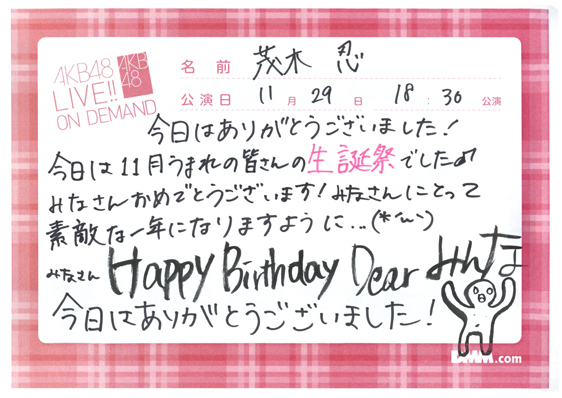 AKB48
LIVE!!
ON DEMAND
AKB
48
名前 茂木 忍
公演日 11月29日 18:30公演
今日はありがとうございました!
今日は11月うまれの皆さんの生誕祭でした♪
みなさんおめでとうございます!みなさんにとって
素敵な一年になりますように...(*´ω`)
みなさん Happy Birthday Dear みんな
今日はありがとうございました!
DMM.com